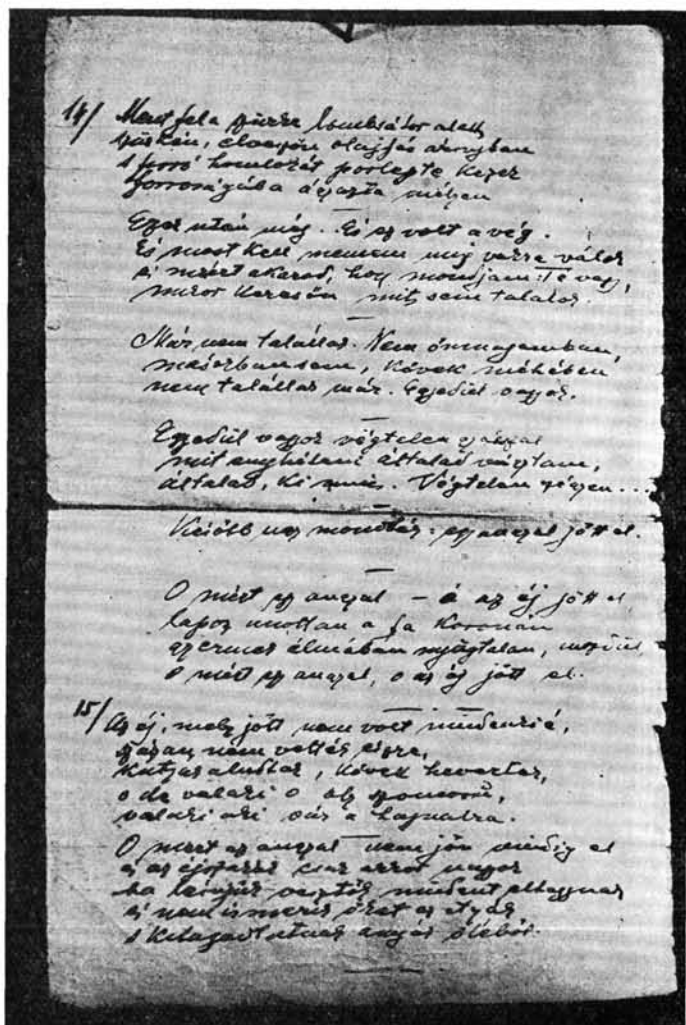 14/ Ment fel a szürke lombsátor alatt
szürkén, elveszőn olajfás árnyban
s forró homlokát porlepte kezek
forróságába ágyazta mélyen
Ezek után még. És ez volt a vég.
És most kell mennem míg vakká válok
és miért akarod, hogy mondjam: Te vagy,
mikor keresőn mit sem találok.
Már nem talállak. Nem önmagamban,
másokban sem, kövek méhében
nem talállak már. Egyedül vagyok.
Egyedül vagyok végtelen gyásszal
mit enyhíteni általad vágytam,
általad, ki nincs. Végtelen szégyen...
Később úgy mondták: egy angyal jött el.
O miért egy angyal – ó az éj jött el
lapoz unottan a fa koronán
álmában nyugtalan, mozdul,
O miért egy angyal, o az éj jött el.
15/ Az éj, mely jött nem volt mindenkié,
százan nem vették észre,
Kutyák aludtak, kövek hevertek,
o de valaki o oly szomorú,
valaki aki vár a hajnalra.
O mert az angyal nem jön mindig el
s az éjszakák csak nagyok
ha vesztők mindent elhagynak
és nem ismerik őket az atyák
s kitagadtatnak anyák öléből.